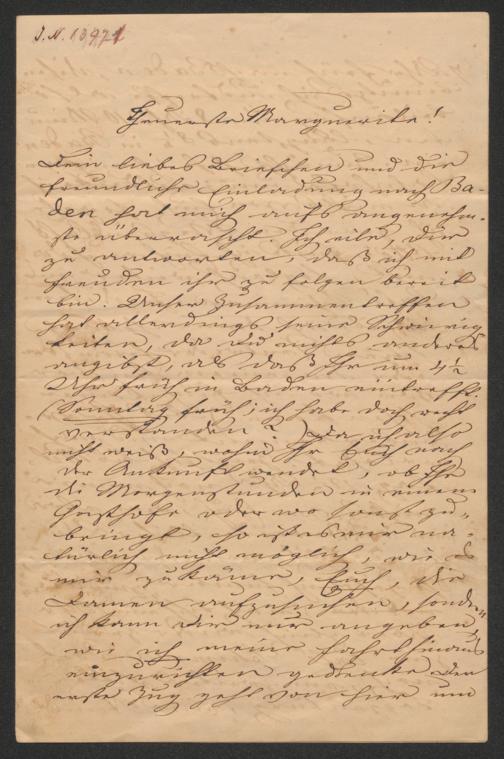 J. N. 13971
Theuerste Marguerite!
Dein liebes Briefchen und die
freundliche Einladung nach Ba-
den hat mich aufs angenehm-
ste überrascht. Ich eile, Dir
zu antworten, daß ich mit
Freuden ihr zu folgen bereit
bin. Unser Zusammentreffen
hat allerdings seine Schwierig
keiten, da Du nichts anderes
angibst, als daß Ihr um 4½
Uhr früh in Baden eintrefft.
(Sonntag früh; ich habe doch recht
verstanden?) Da ich also
nicht weiß, wohin Ihr Euch nach
der Ankunft wendet, ob Ihr
die Morgenstunden in einem
Gasthofe oder wo sonst zu-
bringt, so ist es mir na-
türlich nicht möglich, wie es
mir zukäme, Euch, die
Damen aufzusuchen, sondern
ich kann Dir nur angeben,
wie ich meine Fahrt hinaus
einzurichten gedenke. Der
erste Zug geht von hier um